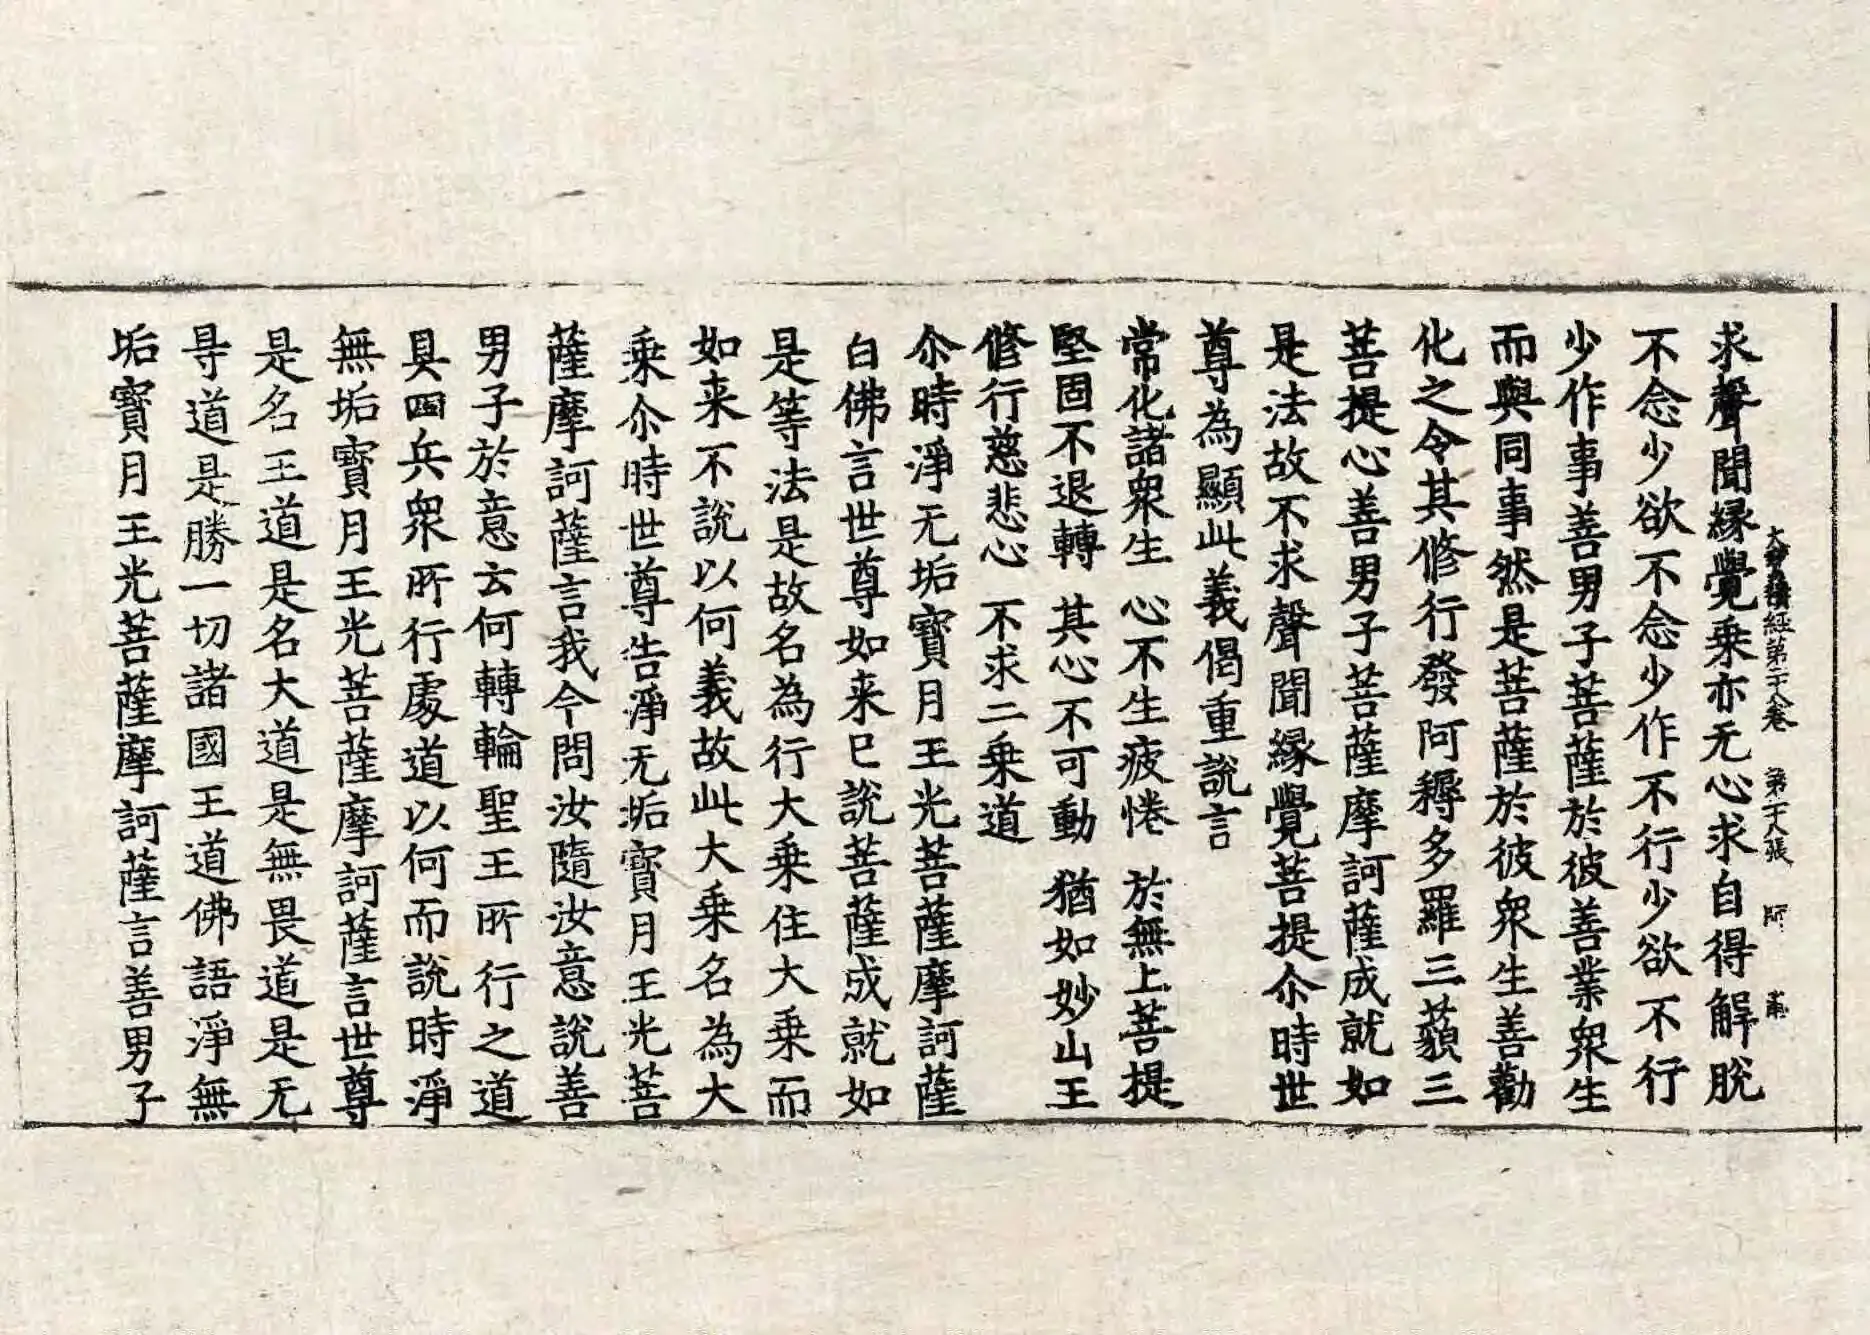 大寶積經第二十八卷 第二十八張 師
求聲聞緣覺乘亦无心求自得解脫
不念少欲不念少作不行少欲不行
少作事善男子菩薩於彼善業衆生
而與同事然是菩薩於彼衆生善勸
化之令其修行發阿耨多羅三藐三
菩提心善男子菩薩摩訶薩成就如
是法故不求聲聞緣覺菩提尒時世
尊為顯此義偈重說言
常化諸衆生 心不生疲惓 於無上菩提
堅固不退轉 其心不可動 猶如妙山王
修行慈悲心 不求二乘道
尒時淨无垢寶月王光菩薩摩訶薩
白佛言世尊如来已說菩薩成就如
是等法是故名為行大乘住大乘而
如来不說以何義故此大乘名為大
乘尒時世尊告淨无垢寶月王光菩
薩摩訶薩言我今問汝隨汝意說善
男子於意云何轉輪聖王所行之道
具四兵衆所行處道以何而說時淨
無垢寶月王光菩薩摩訶薩言世尊
是名王道是名大道是無畏道是无
㝵道是勝一切諸國王道佛語淨無
垢寶月王光菩薩摩訶薩言善男子